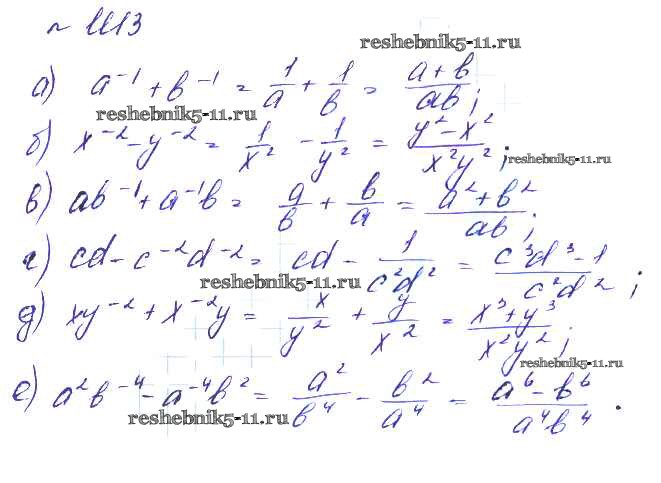 № 1113
reshebnik5-11.ru
а) a⁻¹ + b⁻¹ = 1/a + 1/b = (a + b)/(ab);
reshebnik5-11.ru
б) x⁻² - y⁻² = 1/x² - 1/y² = (y² - x²)/(x²y²);
reshebnik5-11.ru
в) ab⁻¹ + a⁻¹b = a/b + b/a = (a² + b²)/(ab);
г) cd - c⁻²d⁻² = cd - 1/(c²d²) = (c³d³ - 1)/(c²d²);
reshebnik5-11.ru
д) xy⁻² + x⁻²y = x/y² + y/x² = (x³ + y³)/(x²y²);
reshebnik5-11.ru
е) a²b⁻⁴ - a⁻⁴b² = a²/b⁴ - b²/a⁴ = (a⁶ - b⁶)/(a⁴b⁴).
reshebnik5-11.ru